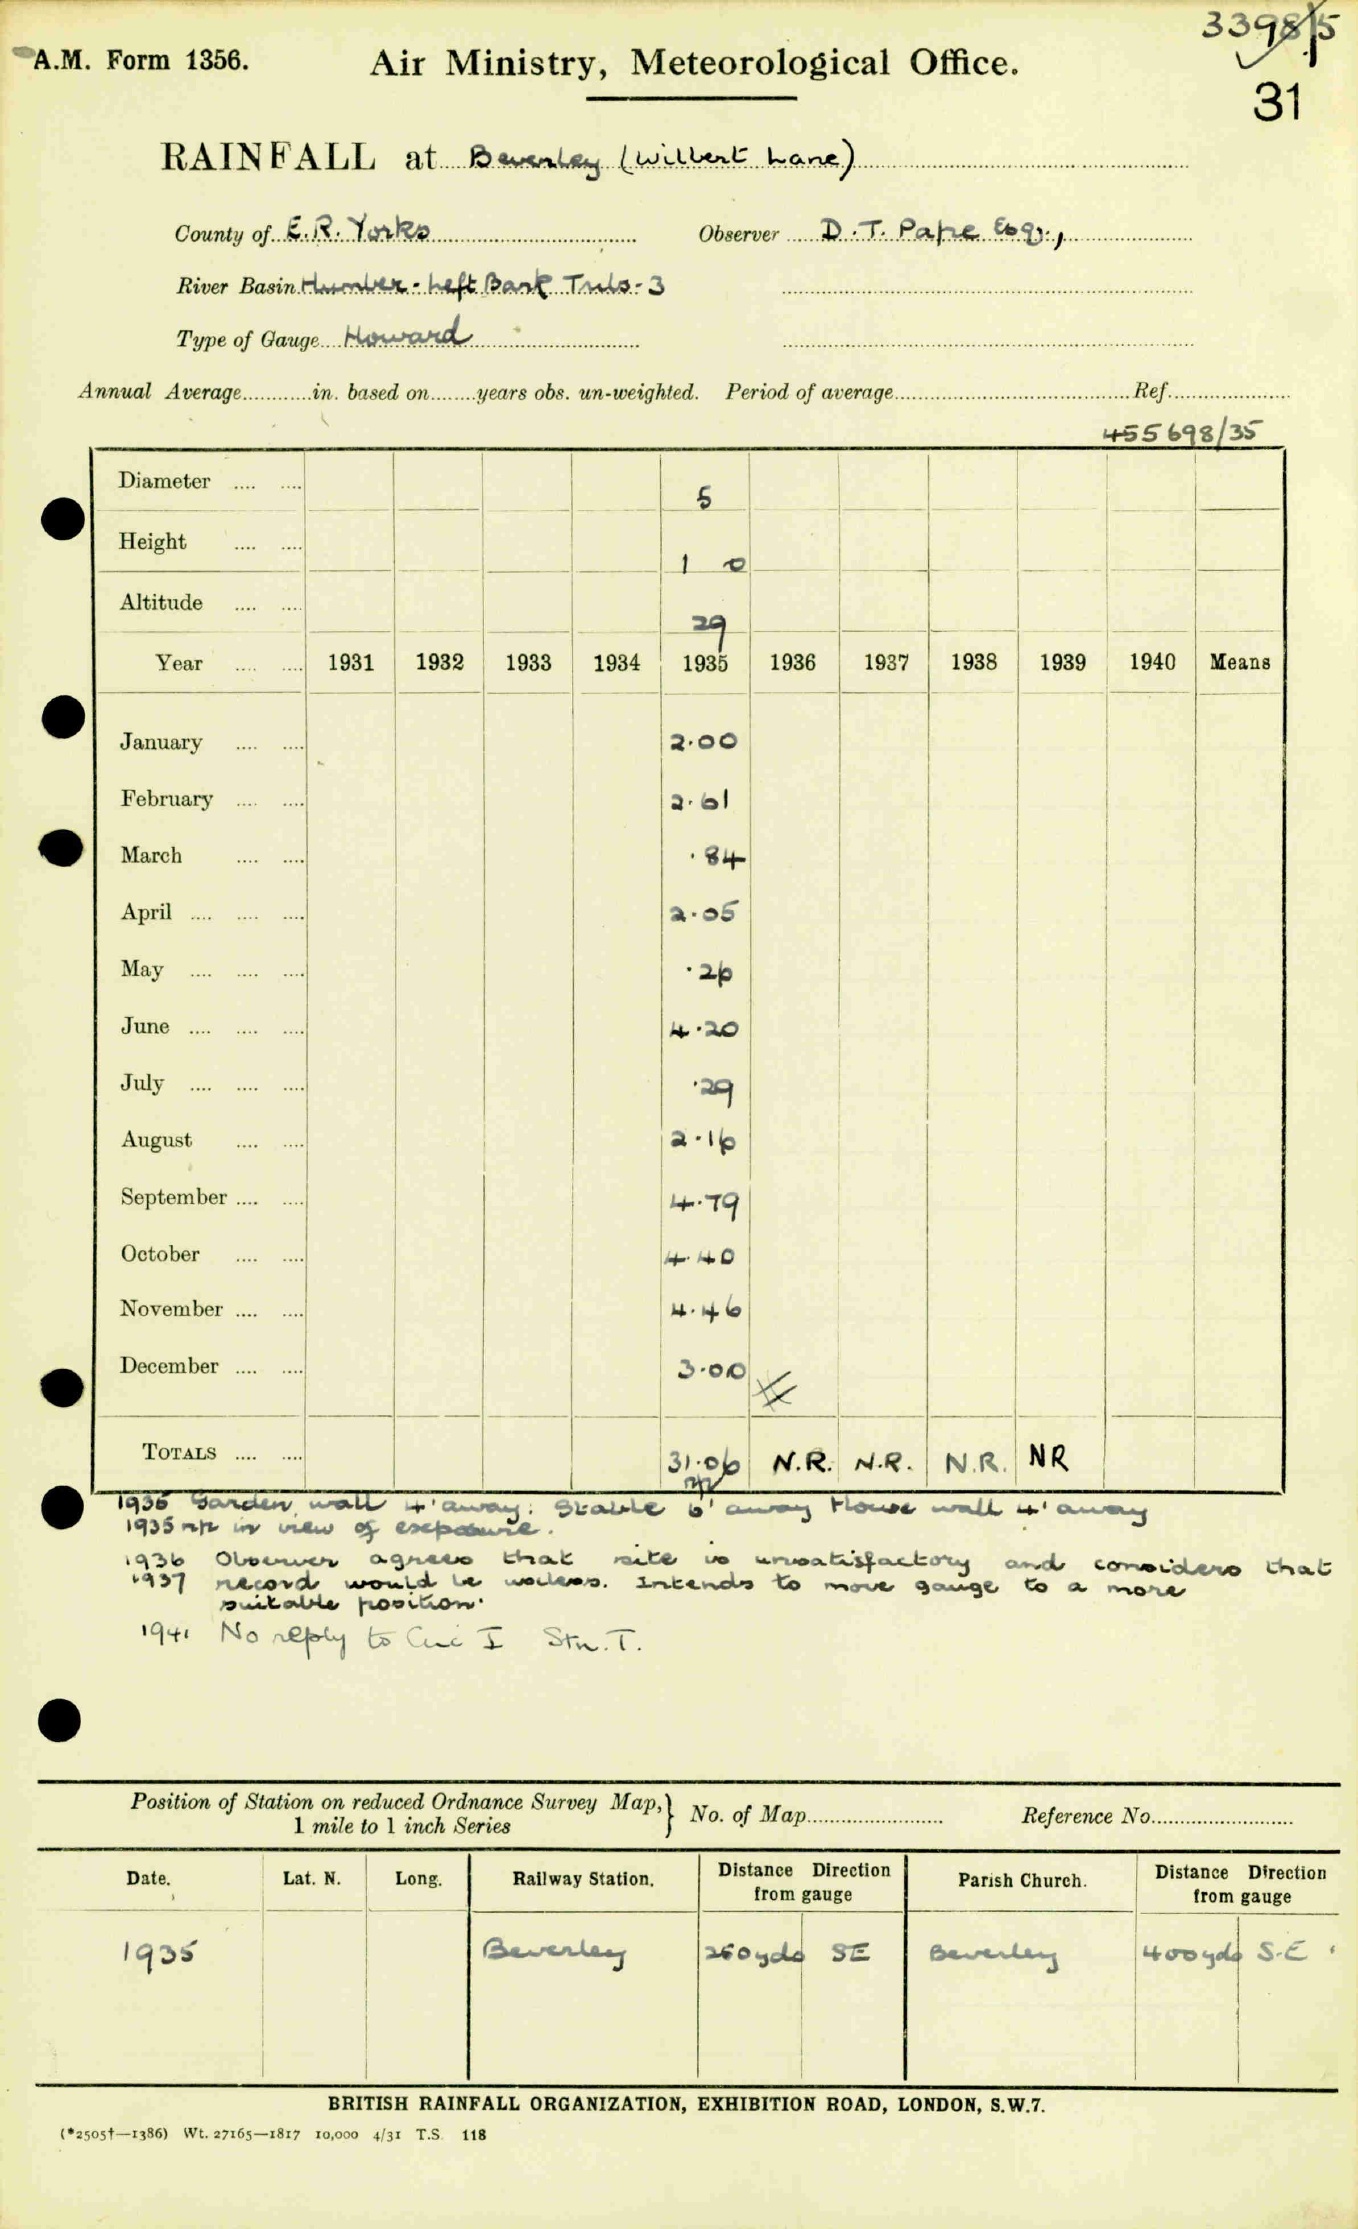 3398/5
A.M. Form 1356.
Air Ministry, Meteorological Office.
31
RAINFALL at Beverley (Wilbert Lane)
County of E.R. Yorks Observer D. T. Pape Esqr.,
River Basin Humber - Left Bank Tribs - 3
Type of Gauge Howard
Annual Average in. based on years obs. un-weighted. Period of average Ref.
455698/35
Diameter 5
Height 1 0
Altitude 29
Year 1931 1932 1933 1934 1935 1936 1937 1938 1939 1940 Means
January 2.00
February 2.61
March .84
April 2.05
May .26
June 4.20
July .29
August 2.16
September 4.79
October 4.40
November 4.46
December 3.00
TOTALS 31.06 N.R. N.R. N.R. NR
np
1935 Garden wall 4' away. Stable 6' away House wall 4' away
1935 np in view of exposure.
1936 Observer agrees that site is unsatisfactory and considers that
1937 record would be useless. Intends to move gauge to a more
suitable position.
1941 No reply to Circ I Stn. T.
Position of Station on reduced Ordnance Survey Map, } No. of Map Reference No.
1 mile to 1 inch Series
Date. Lat. N. Long. Railway Station. Distance Direction from gauge Parish Church. Distance Direction from gauge
1935 Beverley 250 yds SE Beverley 400 yds S.E.
BRITISH RAINFALL ORGANIZATION, EXHIBITION ROAD, LONDON, S.W.7.
(*2505†—1386) Wt. 27165—1817 10,000 4/31 T.S. 118